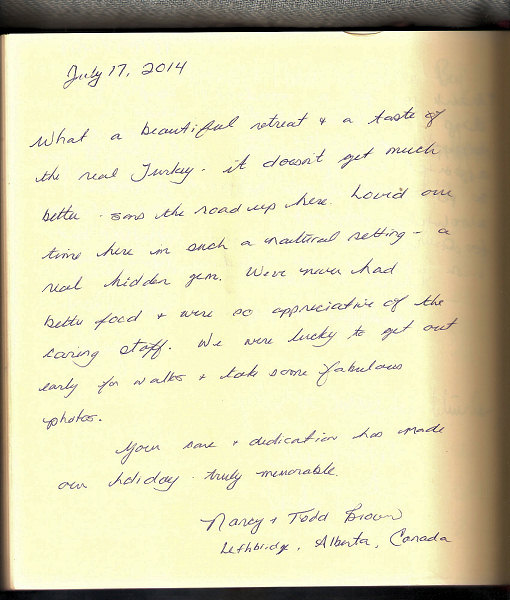 July 17, 2014
What a beautiful retreat & a taste of
the real Turkey. it doesn't get much
better - sans the road up here. Lov'd our
time here in such a natural setting - a
real hidden gem. We've never had
better food & were so appreciative of the
caring staff. We were lucky to get out
early for walks & take some fabulous
photos.
Your care & dedication has made
our holiday truly memorable.
Nancy & Todd Brown
Lethbridge, Alberta, Canada